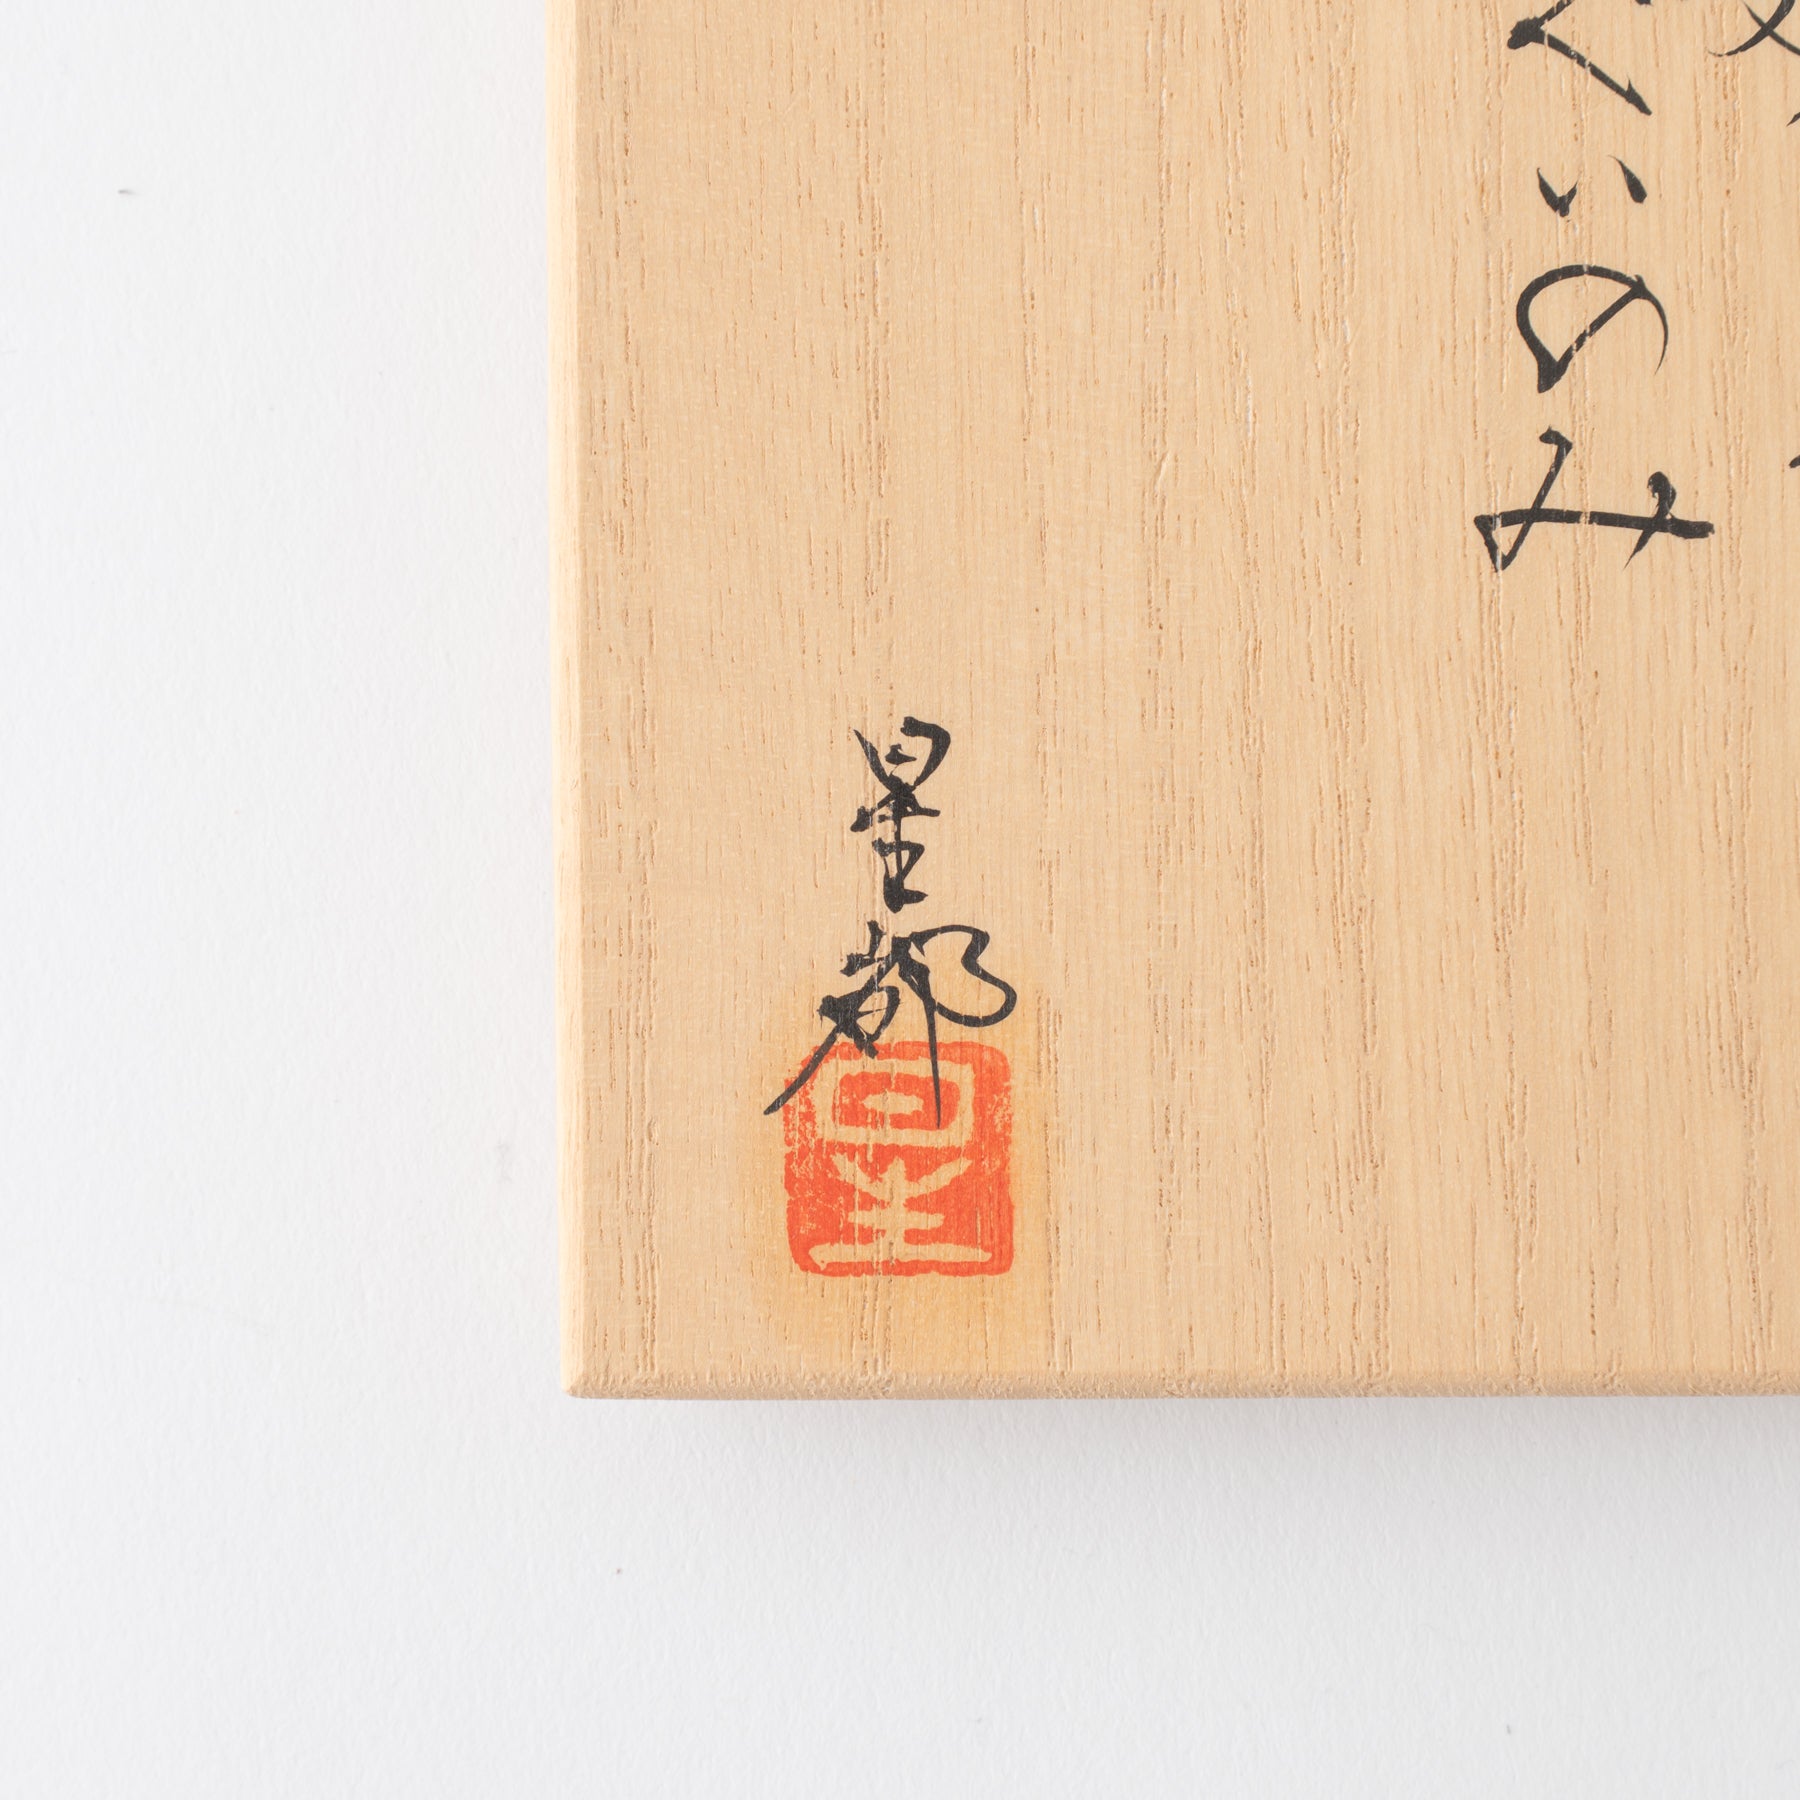 ぐいのみ
星都
星